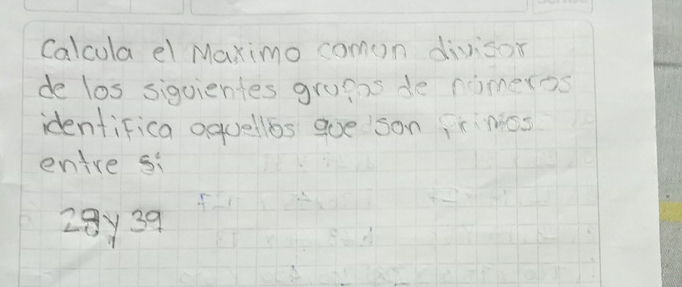 Calcula el Maximo comun divisor
de los siguientes grupos de números
identifica aquellos que son primos
entre si
28 y 39